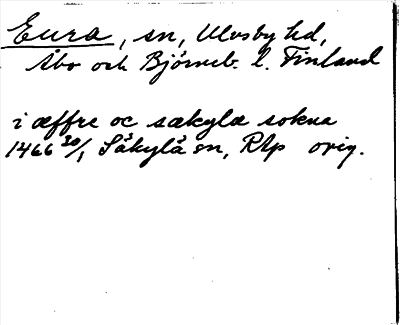 Eura, sn, Ulvsby hd,
Åbo och Björneb. l. Finland
i æffre oc sækylæ sokna
1466 30/1 Säkylä sn, RAp orig.